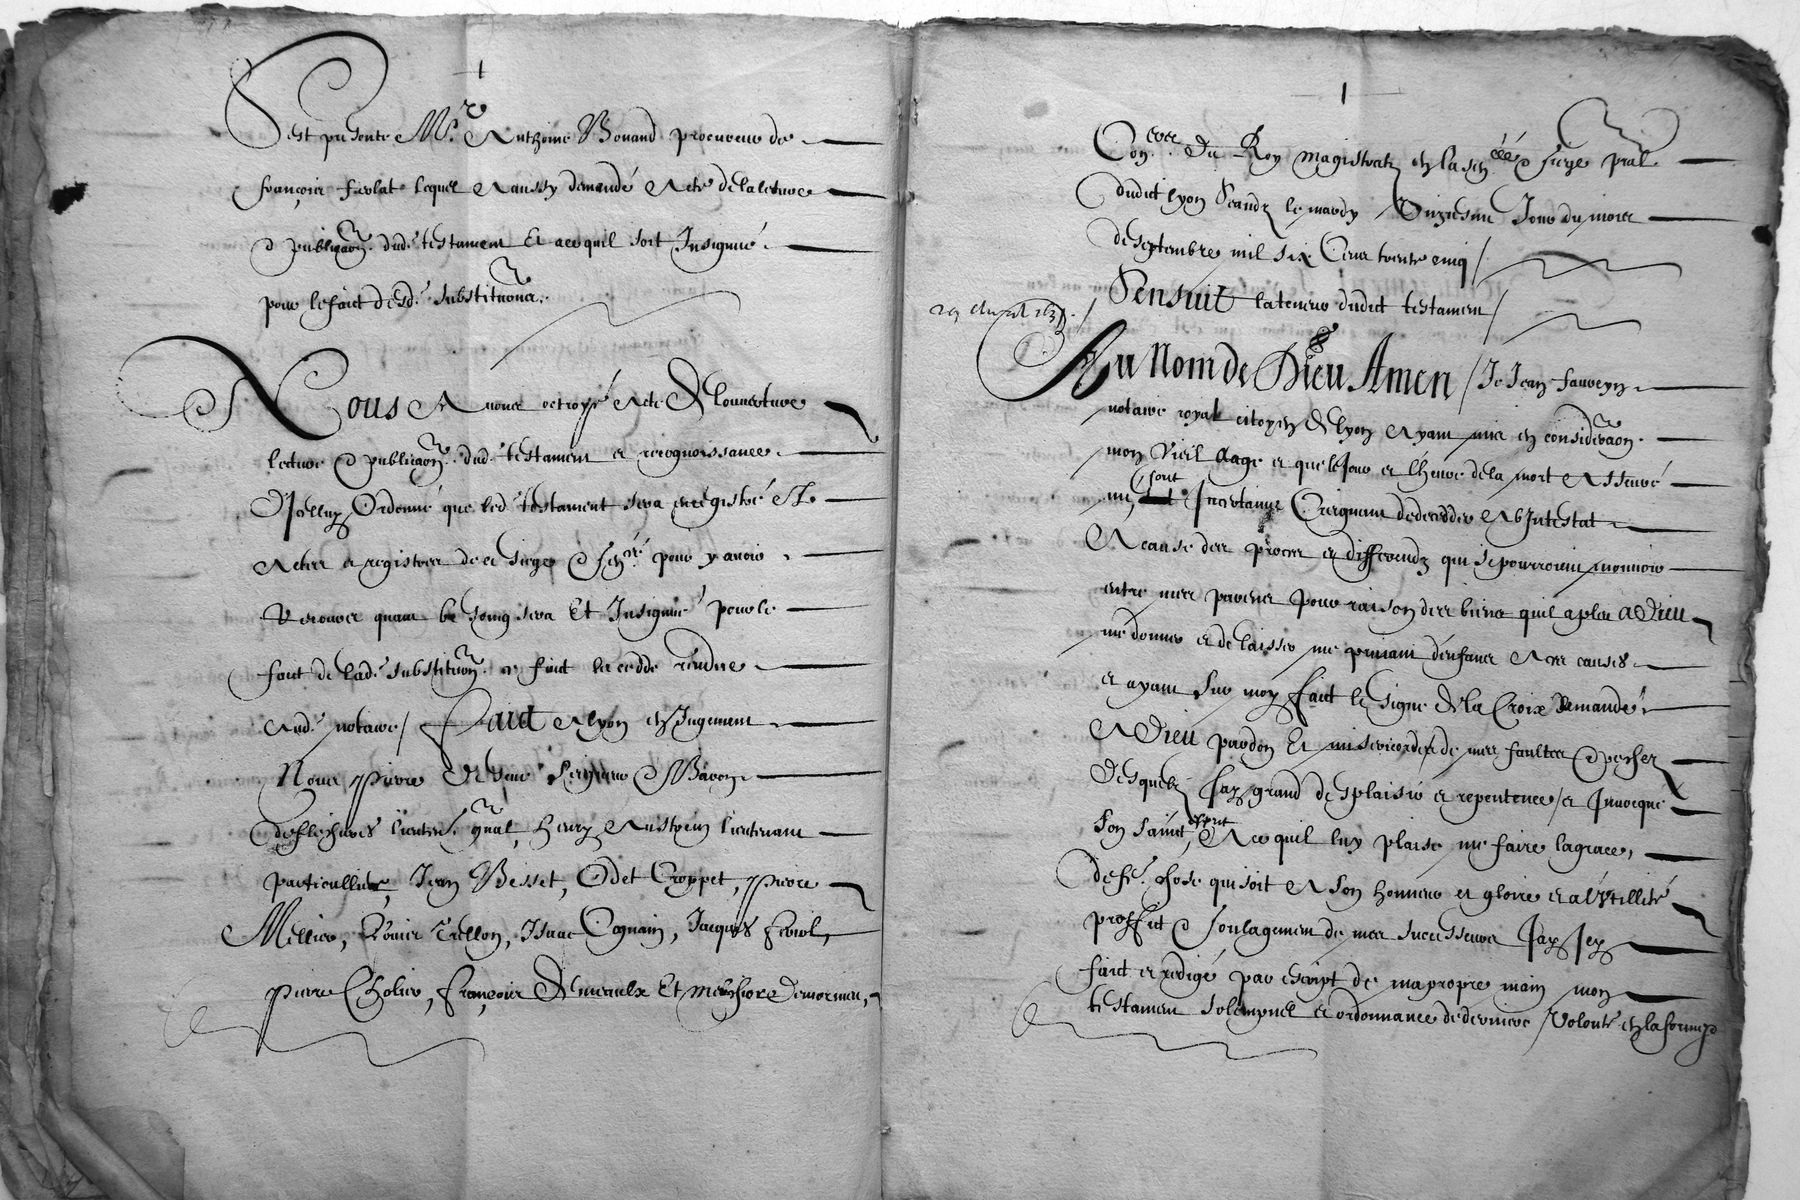 Sest presenté Mr. Anthoine Bonard procureur de
françois fieolat lequel a aussy demandé acte de la lecture
& publicaon. dud. testament Et ace quil soit Insignué
pour le faict desd. substituons.
Nous Avons octroyé Acte de louverture
lecture & publicaon. dud. testament et recognoissance
Dicelluy Ordonné que led. testament sera enregistré Es
Actes et registres de ce siege & sencé. pour y avoir
recours quant besoing sera Et Insignué pour le
faict de lad. substituon. ce faict les cedde rendue
aud. notaire / Faict A lyon en Jugement
Nous Pierre de seve seigneur & Baron
de fleheres lieuten. gnal, Henry Austrein lieutenant
particullier, Jean Besset, Odet Croppet, Pierre
Mellier, Louis Trellon, Isaac Cognain, Jacques feriol,
Pierre Cholier, françois de merault Et Melchior Demornieu,
Coners. du Roy magistratz en la sencée & siege pral
dudict lyon Seandz le mardy Unziesme Jour du mois
de septembre mil six Cens trente cinq /
Sensuit la teneur dudict testament /
Au Nom de Dieu Amen / Je Jean fauveyn
notaire royal citoyen de lyon Ayant mis en consideraon.
mon Vieil aage et que le Jour et l'heure de la mort Asseuré
me, sont Incertaine Creignant de decedder Ab Intestat
A cause des proces et differendz qui se pourroient mouvoir
entre mes parens pour raison des biens quil a pleu a Dieu
me donner et delaisser me privant d'enfans A ces causes
et ayant sur moy faict le signe de la Croix Demandé
A Dieu pardon Et misericorde de mes faultes & pechez
Desquelz Jay grand desplaisir et repentence / et Invocque
son sainct esprit, A ce quil luy plaise me faire la grace,
de fe. chose qui soit A son honneur et gloire et a l'Vtillité
proffict & soulagement de mes successeurs Jay Icy
faict et redigé par escript de ma propre main mon
testament solempnel et ordonnance de derniere Volonté en la forme